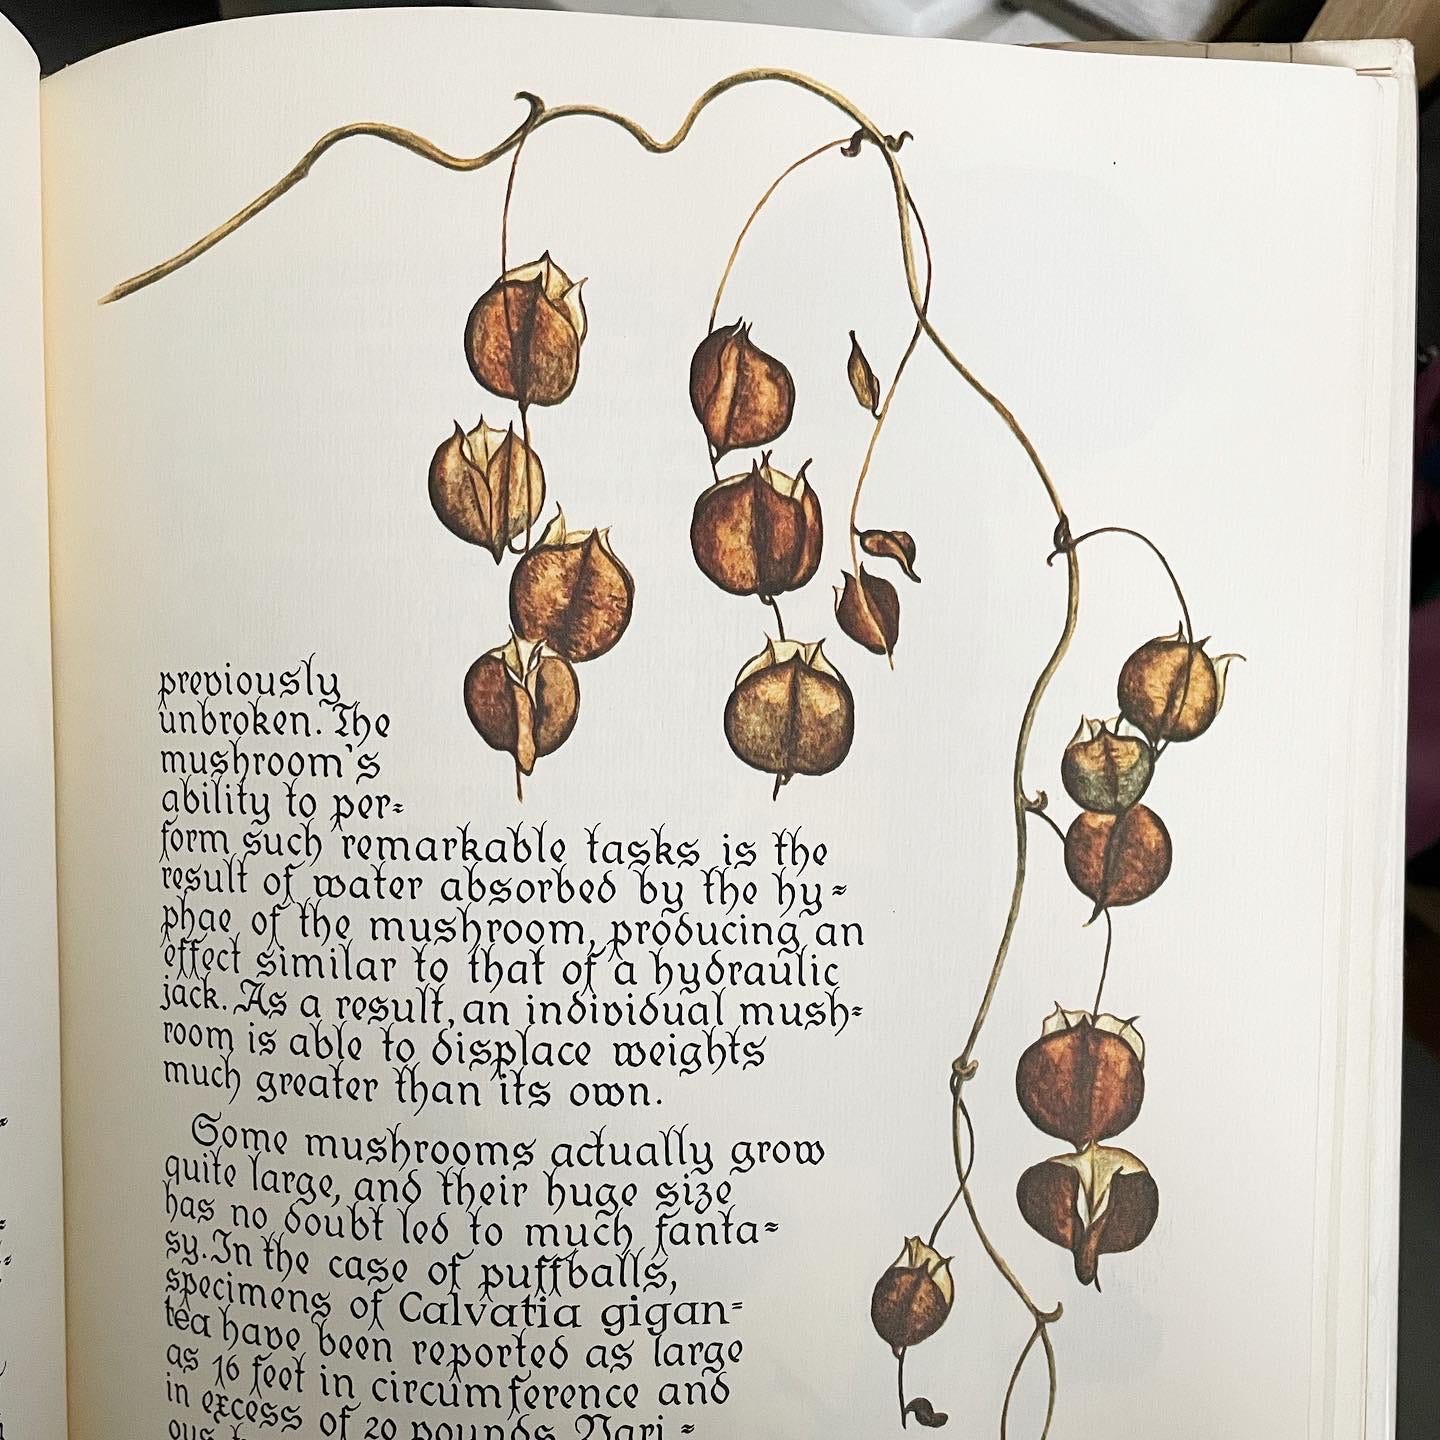 previously
unbroken. The
mushroom's
ability to per=
form such remarkable tasks is the
result of water absorbed by the hy=
phae of the mushroom, producing an
effect similar to that of a hydraulic
jack. As a result, an individual mush=
room is able to displace weights
much greater than its own.
Some mushrooms actually grow
quite large, and their huge size
has no doubt led to much fanta=
sy. In the case of puffballs,
specimens of Calvatia gigan=
tea have been reported as large
as 16 feet in circumference and
in excess of 20 pounds. Vari=
ous